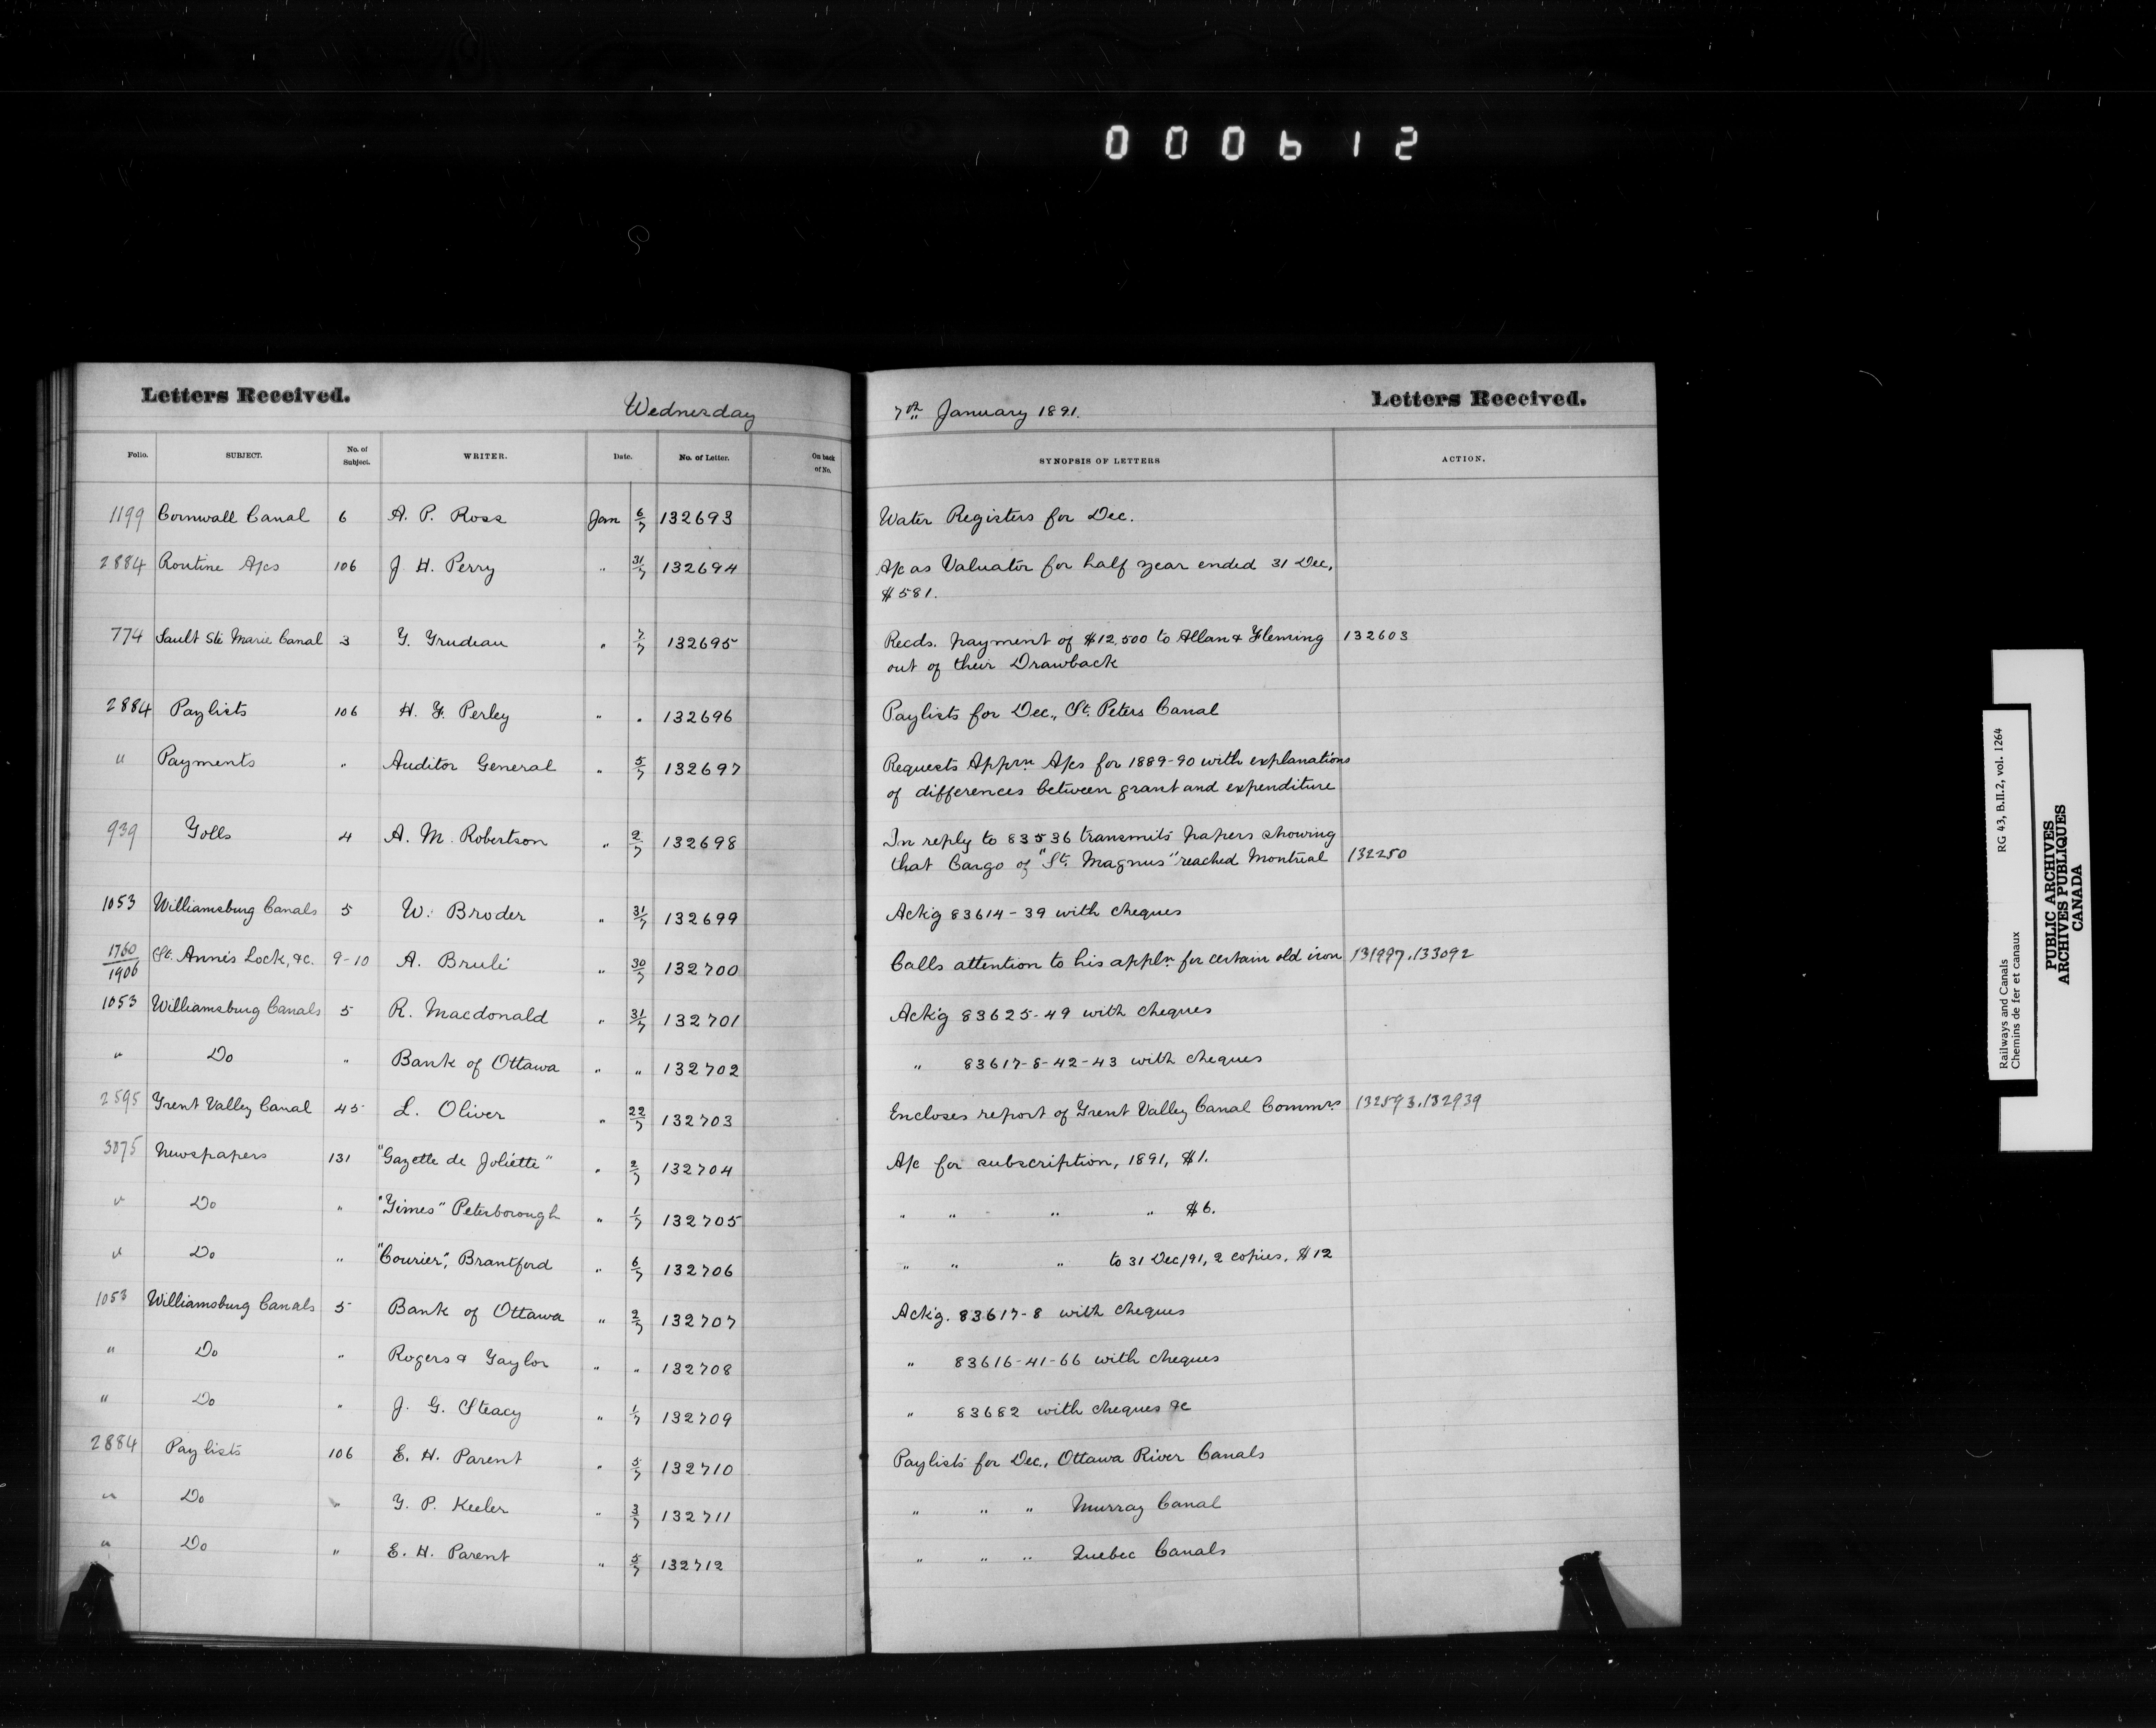 000612
Letters Received.
Wednesday
7th January 1891.
Letters Received.
Folio. SUBJECT. No. of Subject. WRITER. Date. No. of Letter. On back of No. SYNOPSIS OF LETTERS ACTION.
1199 Cornwall Canal 6 A. P. Ross Jan 6/7 132693 Water Registers for Dec.
2884 Routine A/cs 106 J H. Perry " 31/7 132694 A/c as Valuator for half year ended 31 Dec,
$581.
774 Sault Ste Marie Canal 3 T. Trudeau " 7/7 132695 Recds. payment of $12,500 to Allan & Fleming 132603
out of their Drawback
2884 Paylists 106 H. F. Perley " " 132696 Paylists for Dec., St. Peters Canal
" Payments " Auditor General " 5/7 132697 Requests Apprn A/cs for 1889-90 with explanations
of differences between grant and expenditure
939 Tolls 4 A. M. Robertson " 2/7 132698 In reply to 83536 transmits papers showing
that Cargo of "St. Magnus" reached Montreal 132250
1053 Williamsburg Canals 5 W. Broder " 31/7 132699 Ackg 83614-39 with cheques
1760/1906 St. Anne's Lock, &c. 9-10 A. Brulé " 30/7 132700 Calls attention to his appln for certain old iron 131997.133092
1053 Williamsburg Canals 5 R. Macdonald " 31/7 132701 Ackg 83625-49 with cheques
" Do " Bank of Ottawa " " 132702 " 83617-8-42-43 with cheques
2595 Trent Valley Canal 45 L. Oliver " 22/7 132703 Encloses report of Trent Valley Canal Commrs 132593.132939
3075 Newspapers 131 "Gazette de Joliette" " 2/7 132704 A/c for subscription, 1891, $1.
" Do " "Times" Peterborough " 1/7 132705 " " " " $6.
" Do " "Courier", Brantford " 6/7 132706 " " " to 31 Dec/91, 2 copies, $12
1053 Williamsburg Canals 5 Bank of Ottawa " 2/7 132707 Ackg. 83617-8 with cheques
" Do " Rogers & Taylor " " 132708 " 83616-41-66 with cheques
" Do " J. G. Steacy " 1/7 132709 " 83682 with cheques &c
2884 Paylists 106 E. H. Parent " 5/7 132710 Paylists for Dec., Ottawa River Canals
" Do " T. P. Keeler " 3/7 132711 " " " Murray Canal
" Do " E. H. Parent " 5/7 132712 " " " Quebec Canals
Railways and Canals RG 43, B.II.2, vol. 1264
Chemins de fer et canaux
PUBLIC ARCHIVES
ARCHIVES PUBLIQUES
CANADA